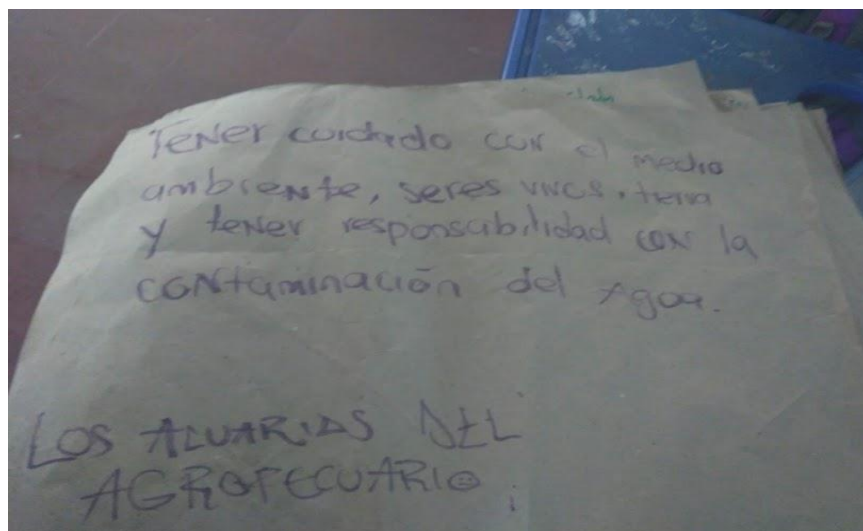 Tener cuidado con el medio
ambiente, seres vivos, tierra
y tener responsabilidad con la
contaminación del Agua.
LOS ACUARIAS DEL
AGROPECUARIO